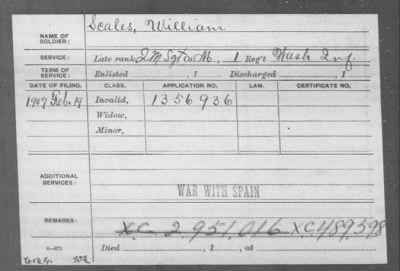 NAME OF SOLDIER: Scales, William
SERVICE: Late rank, Q M Sgt Co. M, 1 Reg't Wash Inf.
TERM OF SERVICE: Enlisted , 1 Discharged , 1
DATE OF FILING. CLASS. APPLICATION NO. LAW. CERTIFICATE NO.
1907 Feb. 19 Invalid, 1356936
Widow,
Minor,
ADDITIONAL SERVICES:
WAR WITH SPAIN
REMARKS: XC 2 951,016 XC 489398
Died , 1 , at